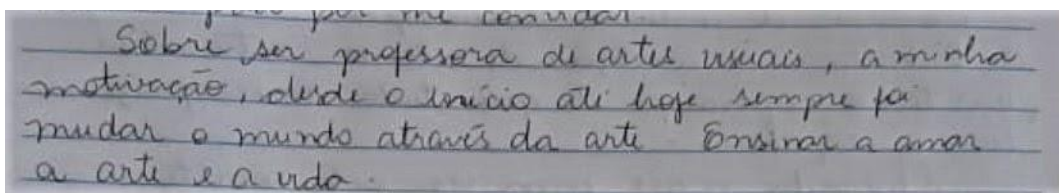 por me convidar.
Sobre ser professora de artes visuais, a minha
motivação, desde o início até hoje sempre foi
mudar o mundo através da arte Ensinar a amar
a arte e a vida.